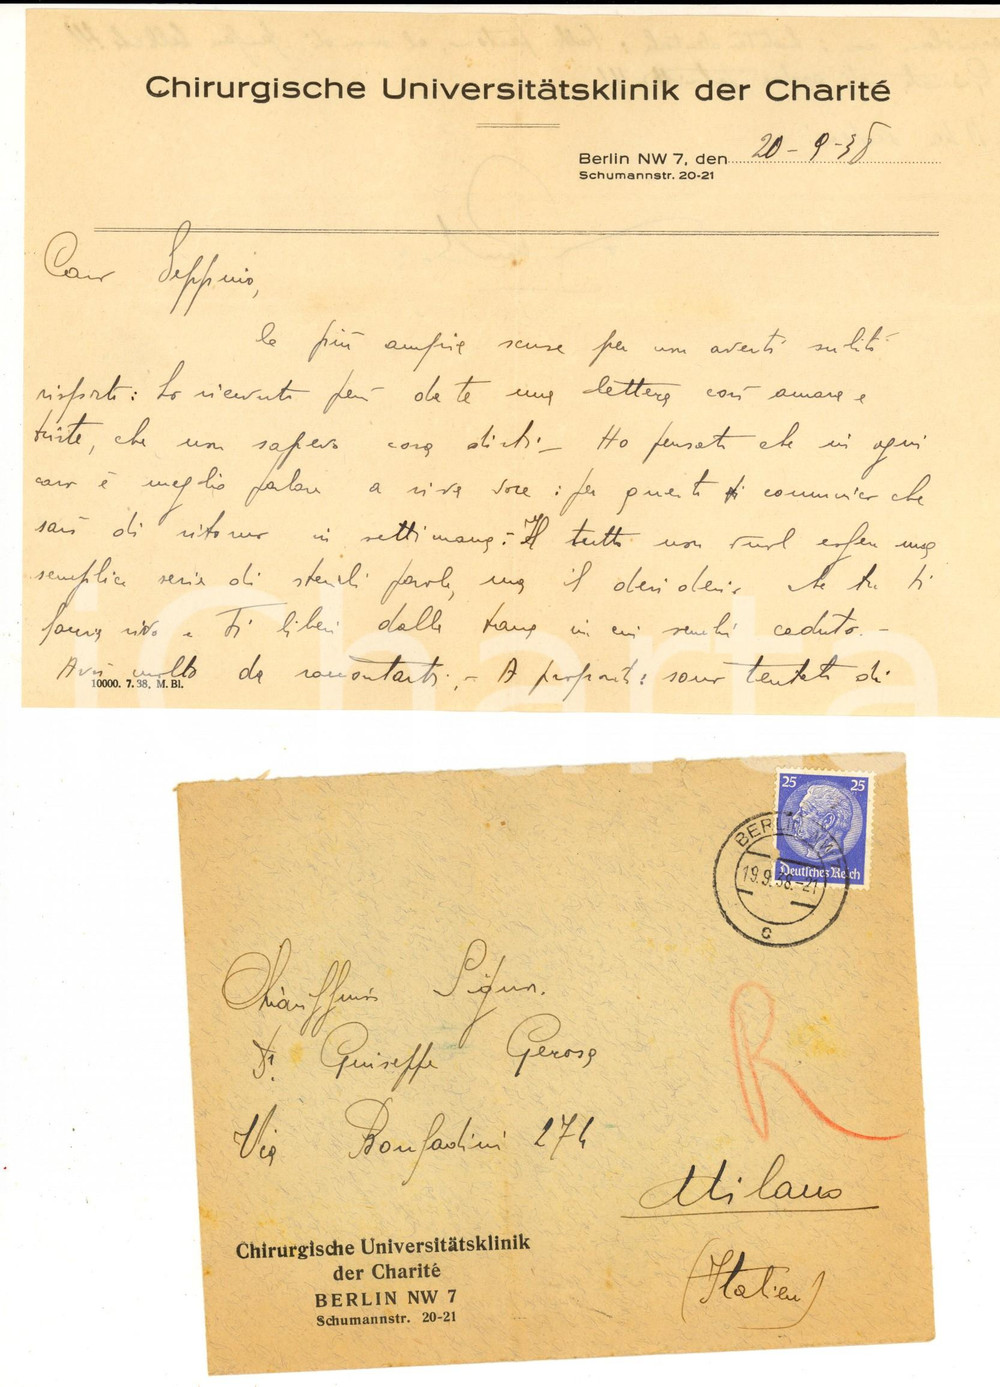 Chirurgische Universitätsklinik der Charité
Berlin NW 7, den 20-9-38
Schumannstr. 20-21
Caro Peppino,
le più ampie scuse per non averti subito
risposto: ho ricevuto però da te una lettera così amara e
triste, che non sapevo cosa dirti - Ho pensato che in ogni
caso è meglio parlare a viva voce: per questo ti comunico che
sarò di ritorno in settimana: Il tutto non vuol essere una
semplice serie di sterili parole, ma il desiderio che tu ti
faccia vivo e Ti liberi dalle tane in cui sembri caduto. -
Avrò molto da raccontarti. - A proposito: sono tentato di
10000. 7. 38. M. Bl.
iCharta
25 25
Deutsches Reich
BERLIN NW
19.9.38.-21
c
Chiarissimo Signor.
Dr. Giuseppe Gerosa
Via Bonfadini 274
R
Milano
(Italien)
Chirurgische Universitätsklinik
der Charité
BERLIN NW 7
Schumannstr. 20-21